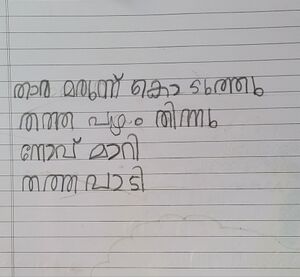 താര മരുന്ന് കൊടുത്തു
തത്ത പഴം തിന്നു
നോവ് മാറി
തത്ത പാടി